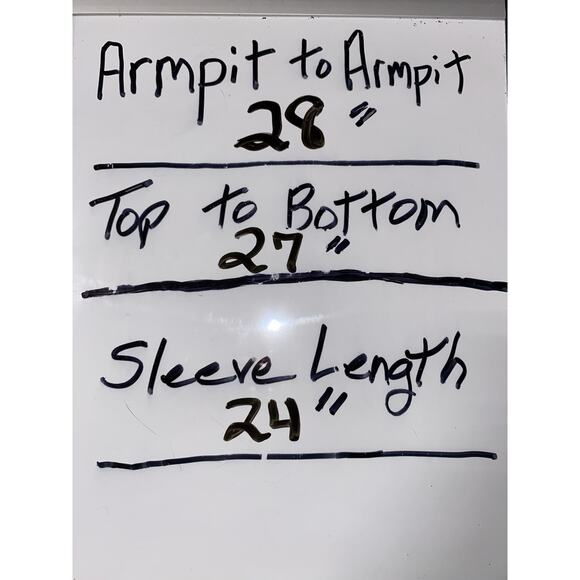 Armpit to Armpit
28"
Top to Bottom
27"
Sleeve Length
24"